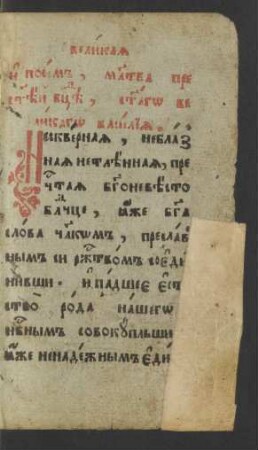 великая
и пои́мъ, мл҃тва пре
ст҃ѣ́й бц҃ѣ, ст҃а́гѡ ве
ли́кагѡ васи́лїѧ.
Нескве́рная, небла́з
ная нетлѣ́нная, пре
чⷭ҇тая бг҃оневѣ́сто
влⷣчце, ꙗ́же бг҃а
сло́ва чл҃кѡмъ, пресла́в
нымъ си рж҇тво́мъ соеди
ни́вши. и па́дшее є҆ст
ство̀ ро́да на́шегѡ
нб҃нымъ совокꙋ́пльши
ꙗ́же ненаде́жнымъ є҆ди́